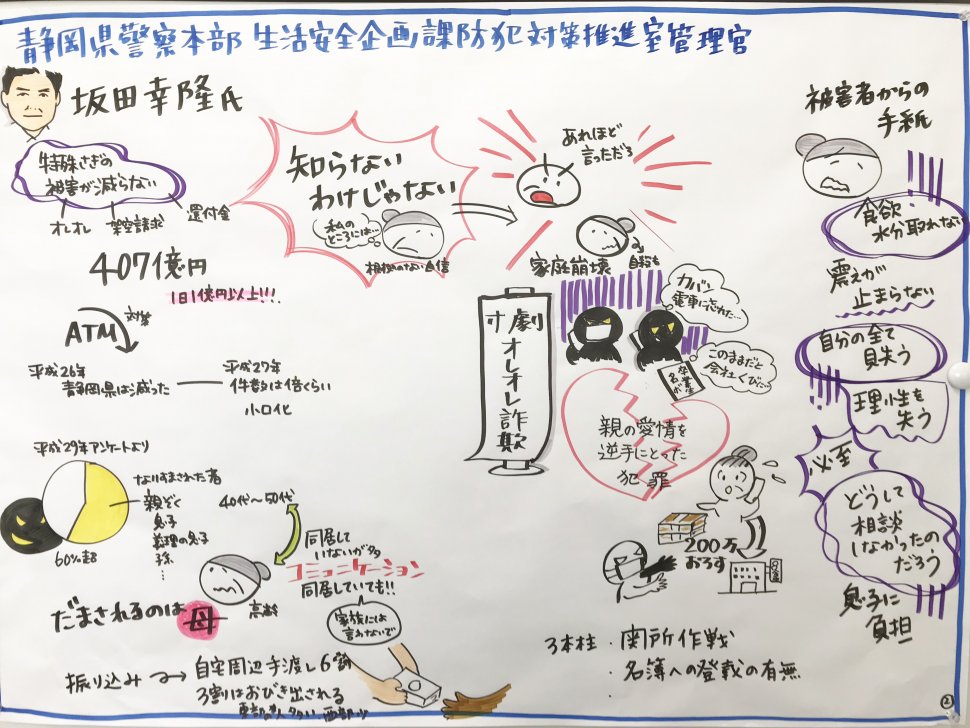 静岡県警察本部 生活安全企画課防犯対策推進室管理官
坂田幸隆氏
特殊さぎの
被害が減らない
オレオレ 架空請求 還付金
407億円
1日1億円以上!!!
ATM 対策
平成26年
静岡県は減った
平成27年
件数は倍くらい
小口化
平成29年アンケートより
60%超
なりすまされた者
親ぞく
息子
義理の息子
孫
⋮
40代〜50代
同居して
いないが多
コミュニケーション
同居していても!!
高齢
だまされるのは母
家族には
言わないで
振り込み
自宅周辺手渡し6割
3割はおびき出される
知らない
わけじゃない
私の
ところには…
根拠のない自信
あれほど
言っただろ
家庭崩壊
自殺も
寸劇
オレオレ詐欺
カバン
電車に忘れた…
このままだと
会社くびに…
卒業生
名ボ
親の愛情を
逆手にとった
犯罪
200万
おろす
3本柱
・関所作戦
・名簿への登載の有無
・
被害者からの
手紙
食欲・
水分取れない
震えが
止まらない
自分の全て
見失う
理性を
失う
必至
どうして
相談
しなかったの
だろう
息子に
負担
②